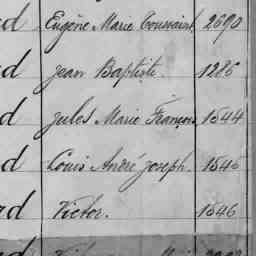 d Eugène Marie Toussaint 2690
d Jean Baptiste 1286
d Jules Marie François 1544
d Louis André Joseph. 1545
d Victor. 1546